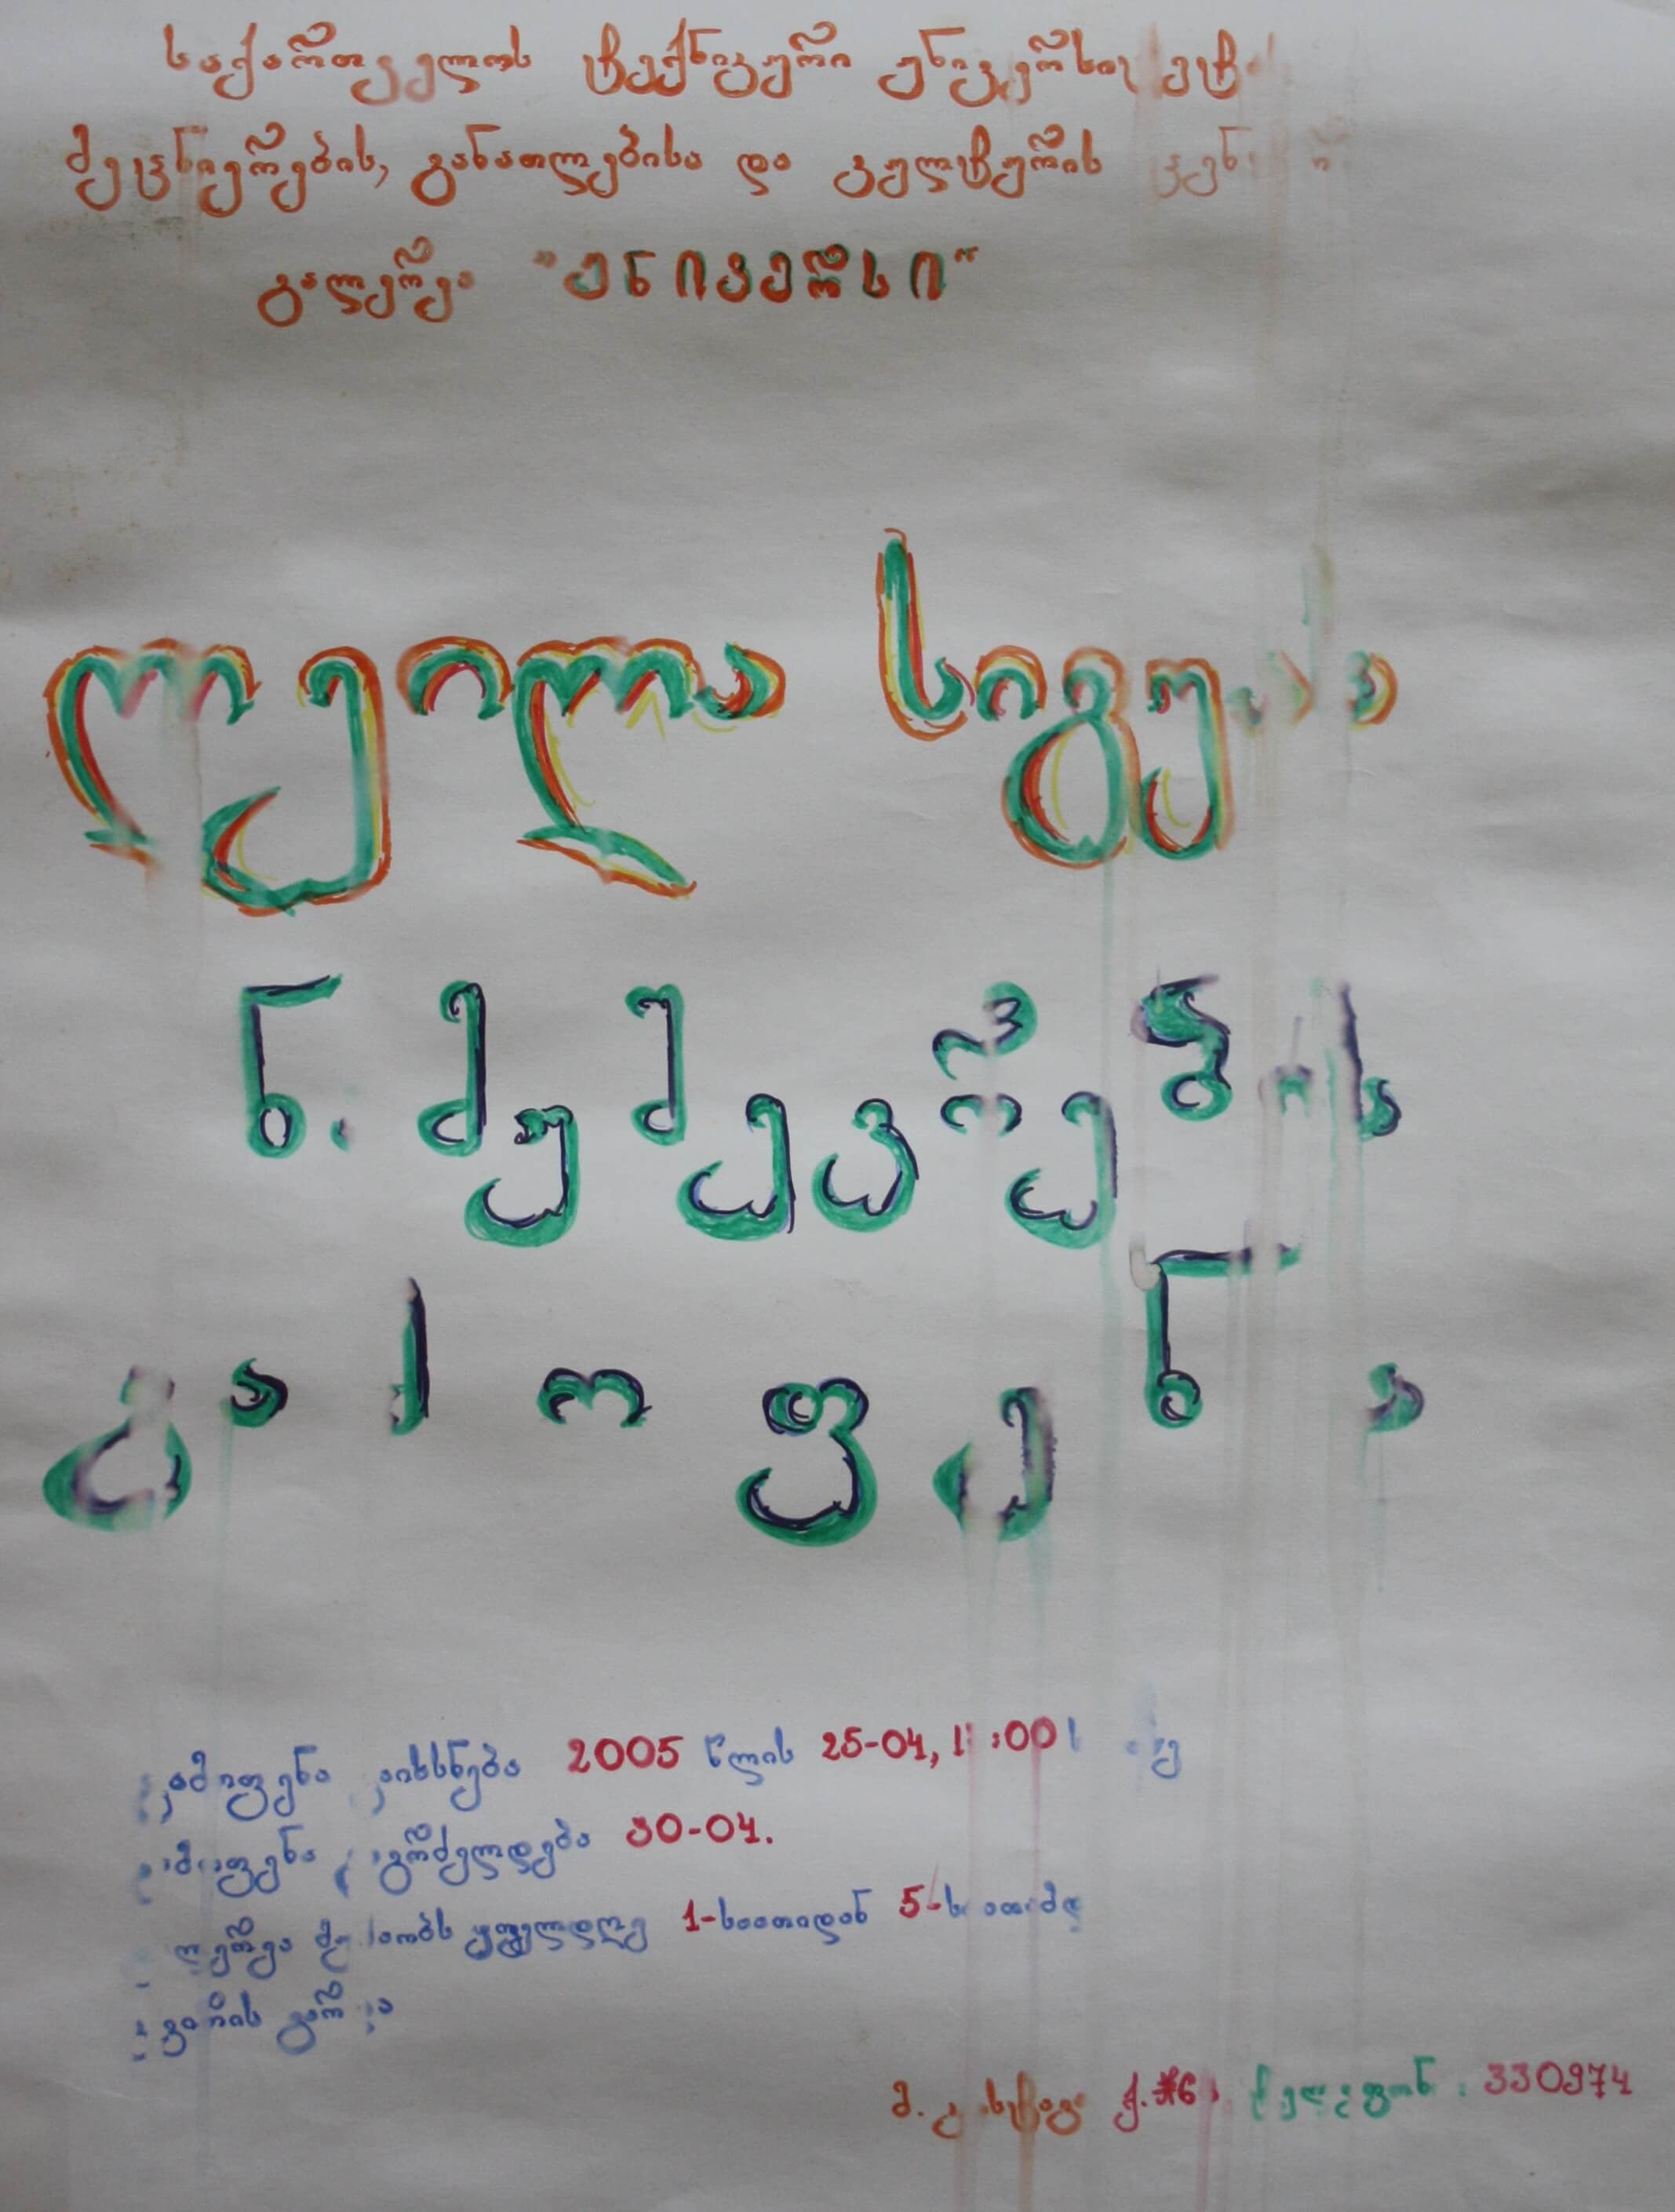 საქართველოს ტექნიკური უნივერსიტეტი
მეცნიერების, განათლებისა და კულტურის
გალერეა "უნივერსი"
ლეილა
ნ. მუშეცრეძის
გამოფენა
გამოფენა გაიხსნება 2005 წლის 25-04,
გამოფენა გაგრძელდება 30-04.
გალერეა მუშაობს ყოველდღე 1-საათიდან 5-საათამდე
კვირის გარდა
მ. კოსტავა ქ. ტელეფონ: 330974